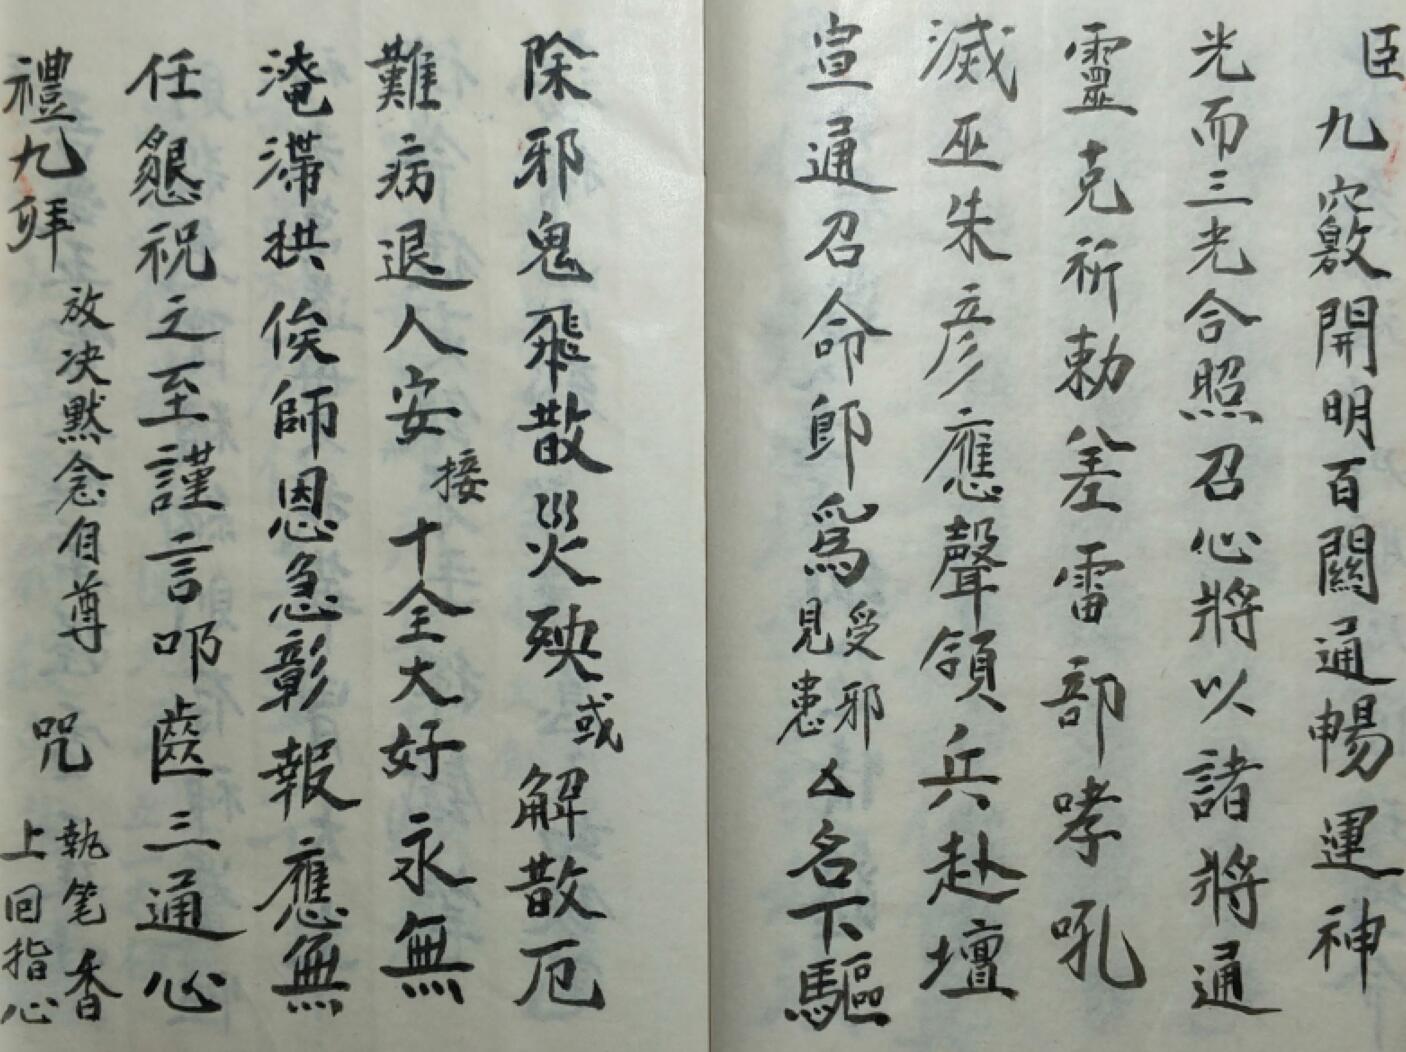 臣九竅開明百關通暢運神
光而三光合照召心將以諸將通
靈克祈勅差雷部哮吼
滅巫朱彥應聲領兵赴壇
宣通召命即爲受邪見患厶名下驅
除邪鬼飛散災殃或解散厄
難病退人安接十全大好永無
淹滯拱俟師恩急彰報應無
任懇祝之至謹言叩齒三通心
禮九拜放決默念自尊咒執笔香上回指心